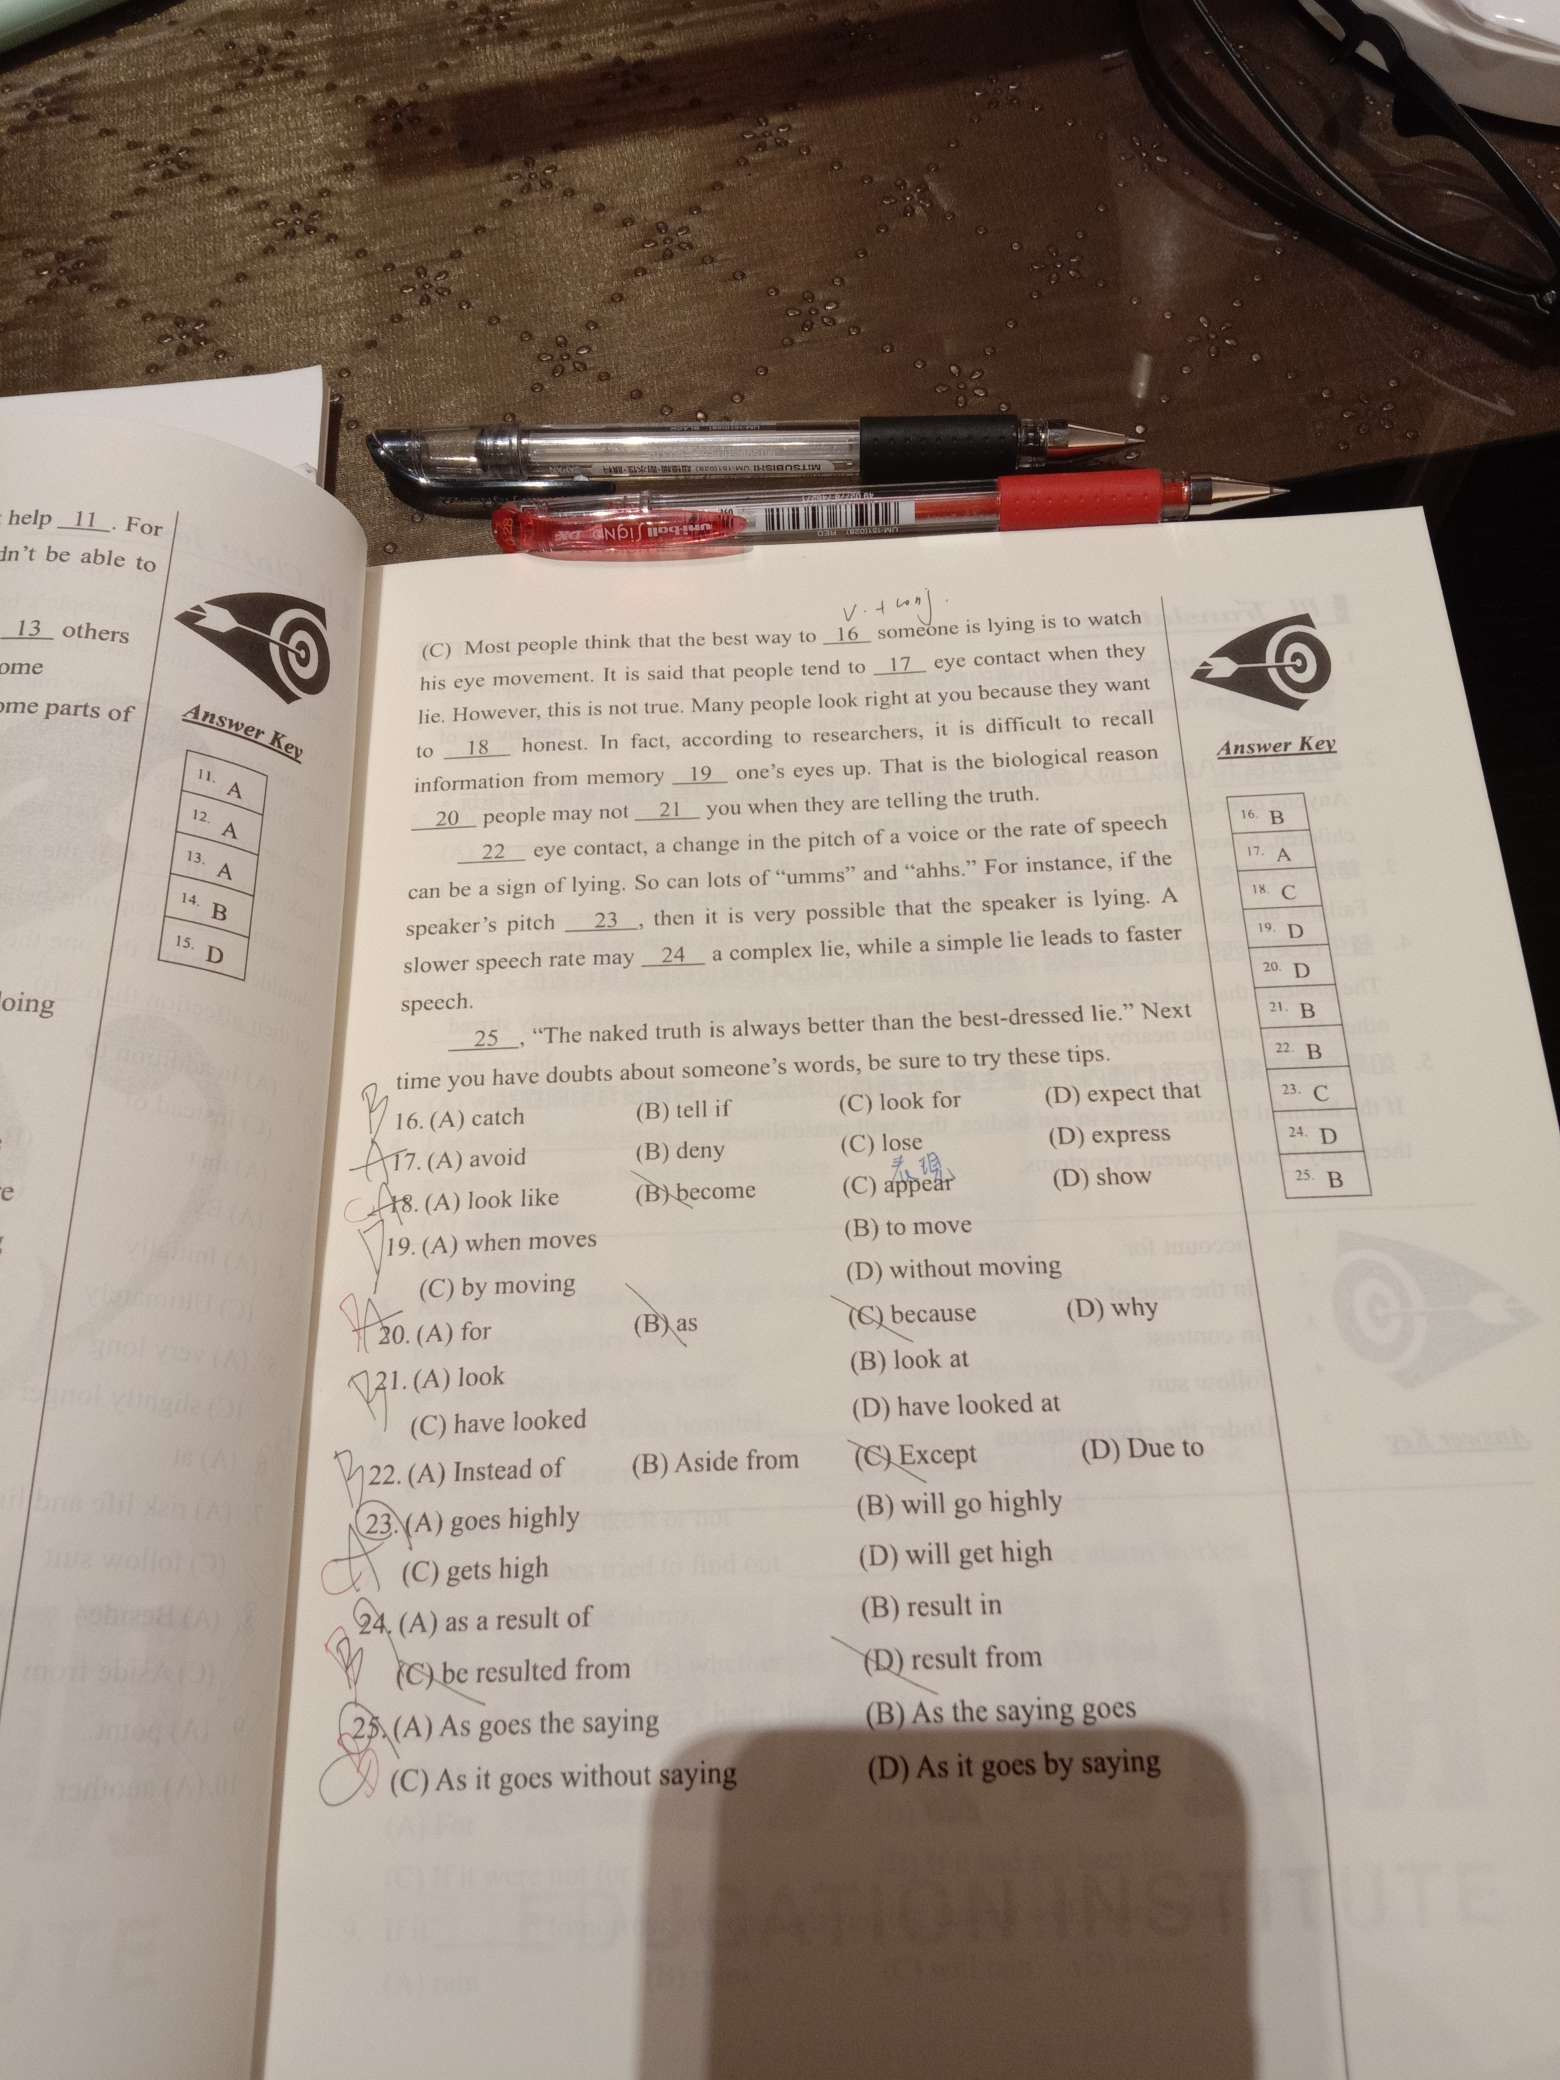 help 11 . For
dn't be able to
13 others
ome
ome parts of
Answer Key
11. A
12. A
13. A
14. B
15. D
oing
MITSUBISHI
uni-ball Signo
RED
V. + conj.
(C) Most people think that the best way to 16 someone is lying is to watch
his eye movement. It is said that people tend to 17 eye contact when they
lie. However, this is not true. Many people look right at you because they want
to 18 honest. In fact, according to researchers, it is difficult to recall
information from memory 19 one's eyes up. That is the biological reason
20 people may not 21 you when they are telling the truth.
22 eye contact, a change in the pitch of a voice or the rate of speech
can be a sign of lying. So can lots of “umms” and “ahhs.” For instance, if the
speaker's pitch 23 , then it is very possible that the speaker is lying. A
slower speech rate may 24 a complex lie, while a simple lie leads to faster
speech.
25 , “The naked truth is always better than the best-dressed lie.” Next
time you have doubts about someone's words, be sure to try these tips.
B 16. (A) catch (B) tell if (C) look for (D) expect that
A 17. (A) avoid (B) deny (C) lose (D) express
表現
C A 18. (A) look like (B) become (C) appear (D) show
D 19. (A) when moves (B) to move
(C) by moving (D) without moving
D A 20. (A) for (B) as (C) because (D) why
B 21. (A) look (B) look at
(C) have looked (D) have looked at
B 22. (A) Instead of (B) Aside from (C) Except (D) Due to
23. (A) goes highly (B) will go highly
C A (C) gets high (D) will get high
24. (A) as a result of (B) result in
D B (C) be resulted from (D) result from
25. (A) As goes the saying (B) As the saying goes
B C (C) As it goes without saying (D) As it goes by saying
Answer Key
16. B
17. A
18. C
19. D
20. D
21. B
22. B
23. C
24. D
25. B
EDUCATION INSTITUTE